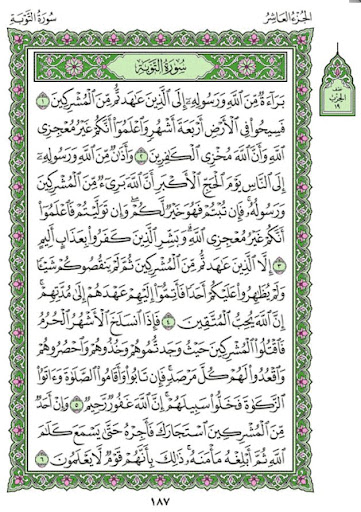 الجزء العاشر
سورة التوبة
سورة التوبة
نصف
الحزب
١٩
بَرَآءَةٌ مِّنَ ٱللَّهِ وَرَسُولِهِۦٓ إِلَى ٱلَّذِينَ عَٰهَدتُّم مِّنَ ٱلْمُشْرِكِينَ ١
فَسِيحُوا۟ فِى ٱلْأَرْضِ أَرْبَعَةَ أَشْهُرٍ وَٱعْلَمُوٓا۟ أَنَّكُمْ غَيْرُ مُعْجِزِى
ٱللَّهِ وَأَنَّ ٱللَّهَ مُخْزِى ٱلْكَٰفِرِينَ ٢ وَأَذَٰنٌ مِّنَ ٱللَّهِ وَرَسُولِهِۦٓ
إِلَى ٱلنَّاسِ يَوْمَ ٱلْحَجِّ ٱلْأَكْبَرِ أَنَّ ٱللَّهَ بَرِىٓءٌ مِّنَ ٱلْمُشْرِكِينَ
وَرَسُولُهُۥ فَإِن تُبْتُمْ فَهُوَ خَيْرٌ لَّكُمْ وَإِن تَوَلَّيْتُمْ فَٱعْلَمُوٓا۟
أَنَّكُمْ غَيْرُ مُعْجِزِى ٱللَّهِ وَبَشِّرِ ٱلَّذِينَ كَفَرُوا۟ بِعَذَابٍ أَلِيمٍ
٣ إِلَّا ٱلَّذِينَ عَٰهَدتُّم مِّنَ ٱلْمُشْرِكِينَ ثُمَّ لَمْ يَنقُصُوكُمْ شَيْـًٔا
وَلَمْ يُظَٰهِرُوا۟ عَلَيْكُمْ أَحَدًا فَأَتِمُّوٓا۟ إِلَيْهِمْ عَهْدَهُمْ إِلَىٰ مُدَّتِهِمْ
إِنَّ ٱللَّهَ يُحِبُّ ٱلْمُتَّقِينَ ٤ فَإِذَا ٱنسَلَخَ ٱلْأَشْهُرُ ٱلْحُرُمُ
فَٱقْتُلُوا۟ ٱلْمُشْرِكِينَ حَيْثُ وَجَدتُّمُوهُمْ وَخُذُوهُمْ وَٱحْصُرُوهُمْ
وَٱقْعُدُوا۟ لَهُمْ كُلَّ مَرْصَدٍ فَإِن تَابُوا۟ وَأَقَامُوا۟ ٱلصَّلَوٰةَ وَءَاتَوُا۟
ٱلزَّكَوٰةَ فَخَلُّوا۟ سَبِيلَهُمْ إِنَّ ٱللَّهَ غَفُورٌ رَّحِيمٌ ٥ وَإِنْ أَحَدٌ
مِّنَ ٱلْمُشْرِكِينَ ٱسْتَجَارَكَ فَأَجِرْهُ حَتَّىٰ يَسْمَعَ كَلَٰمَ
ٱللَّهِ ثُمَّ أَبْلِغْهُ مَأْمَنَهُۥ ذَٰلِكَ بِأَنَّهُمْ قَوْمٌ لَّا يَعْلَمُونَ ٦
١٨٧